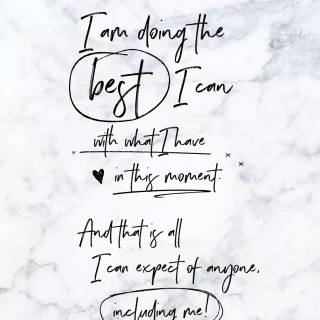 I am doing the
best I can
with what I have
in this moment.
And that is all
I can expect of anyone,
including me!